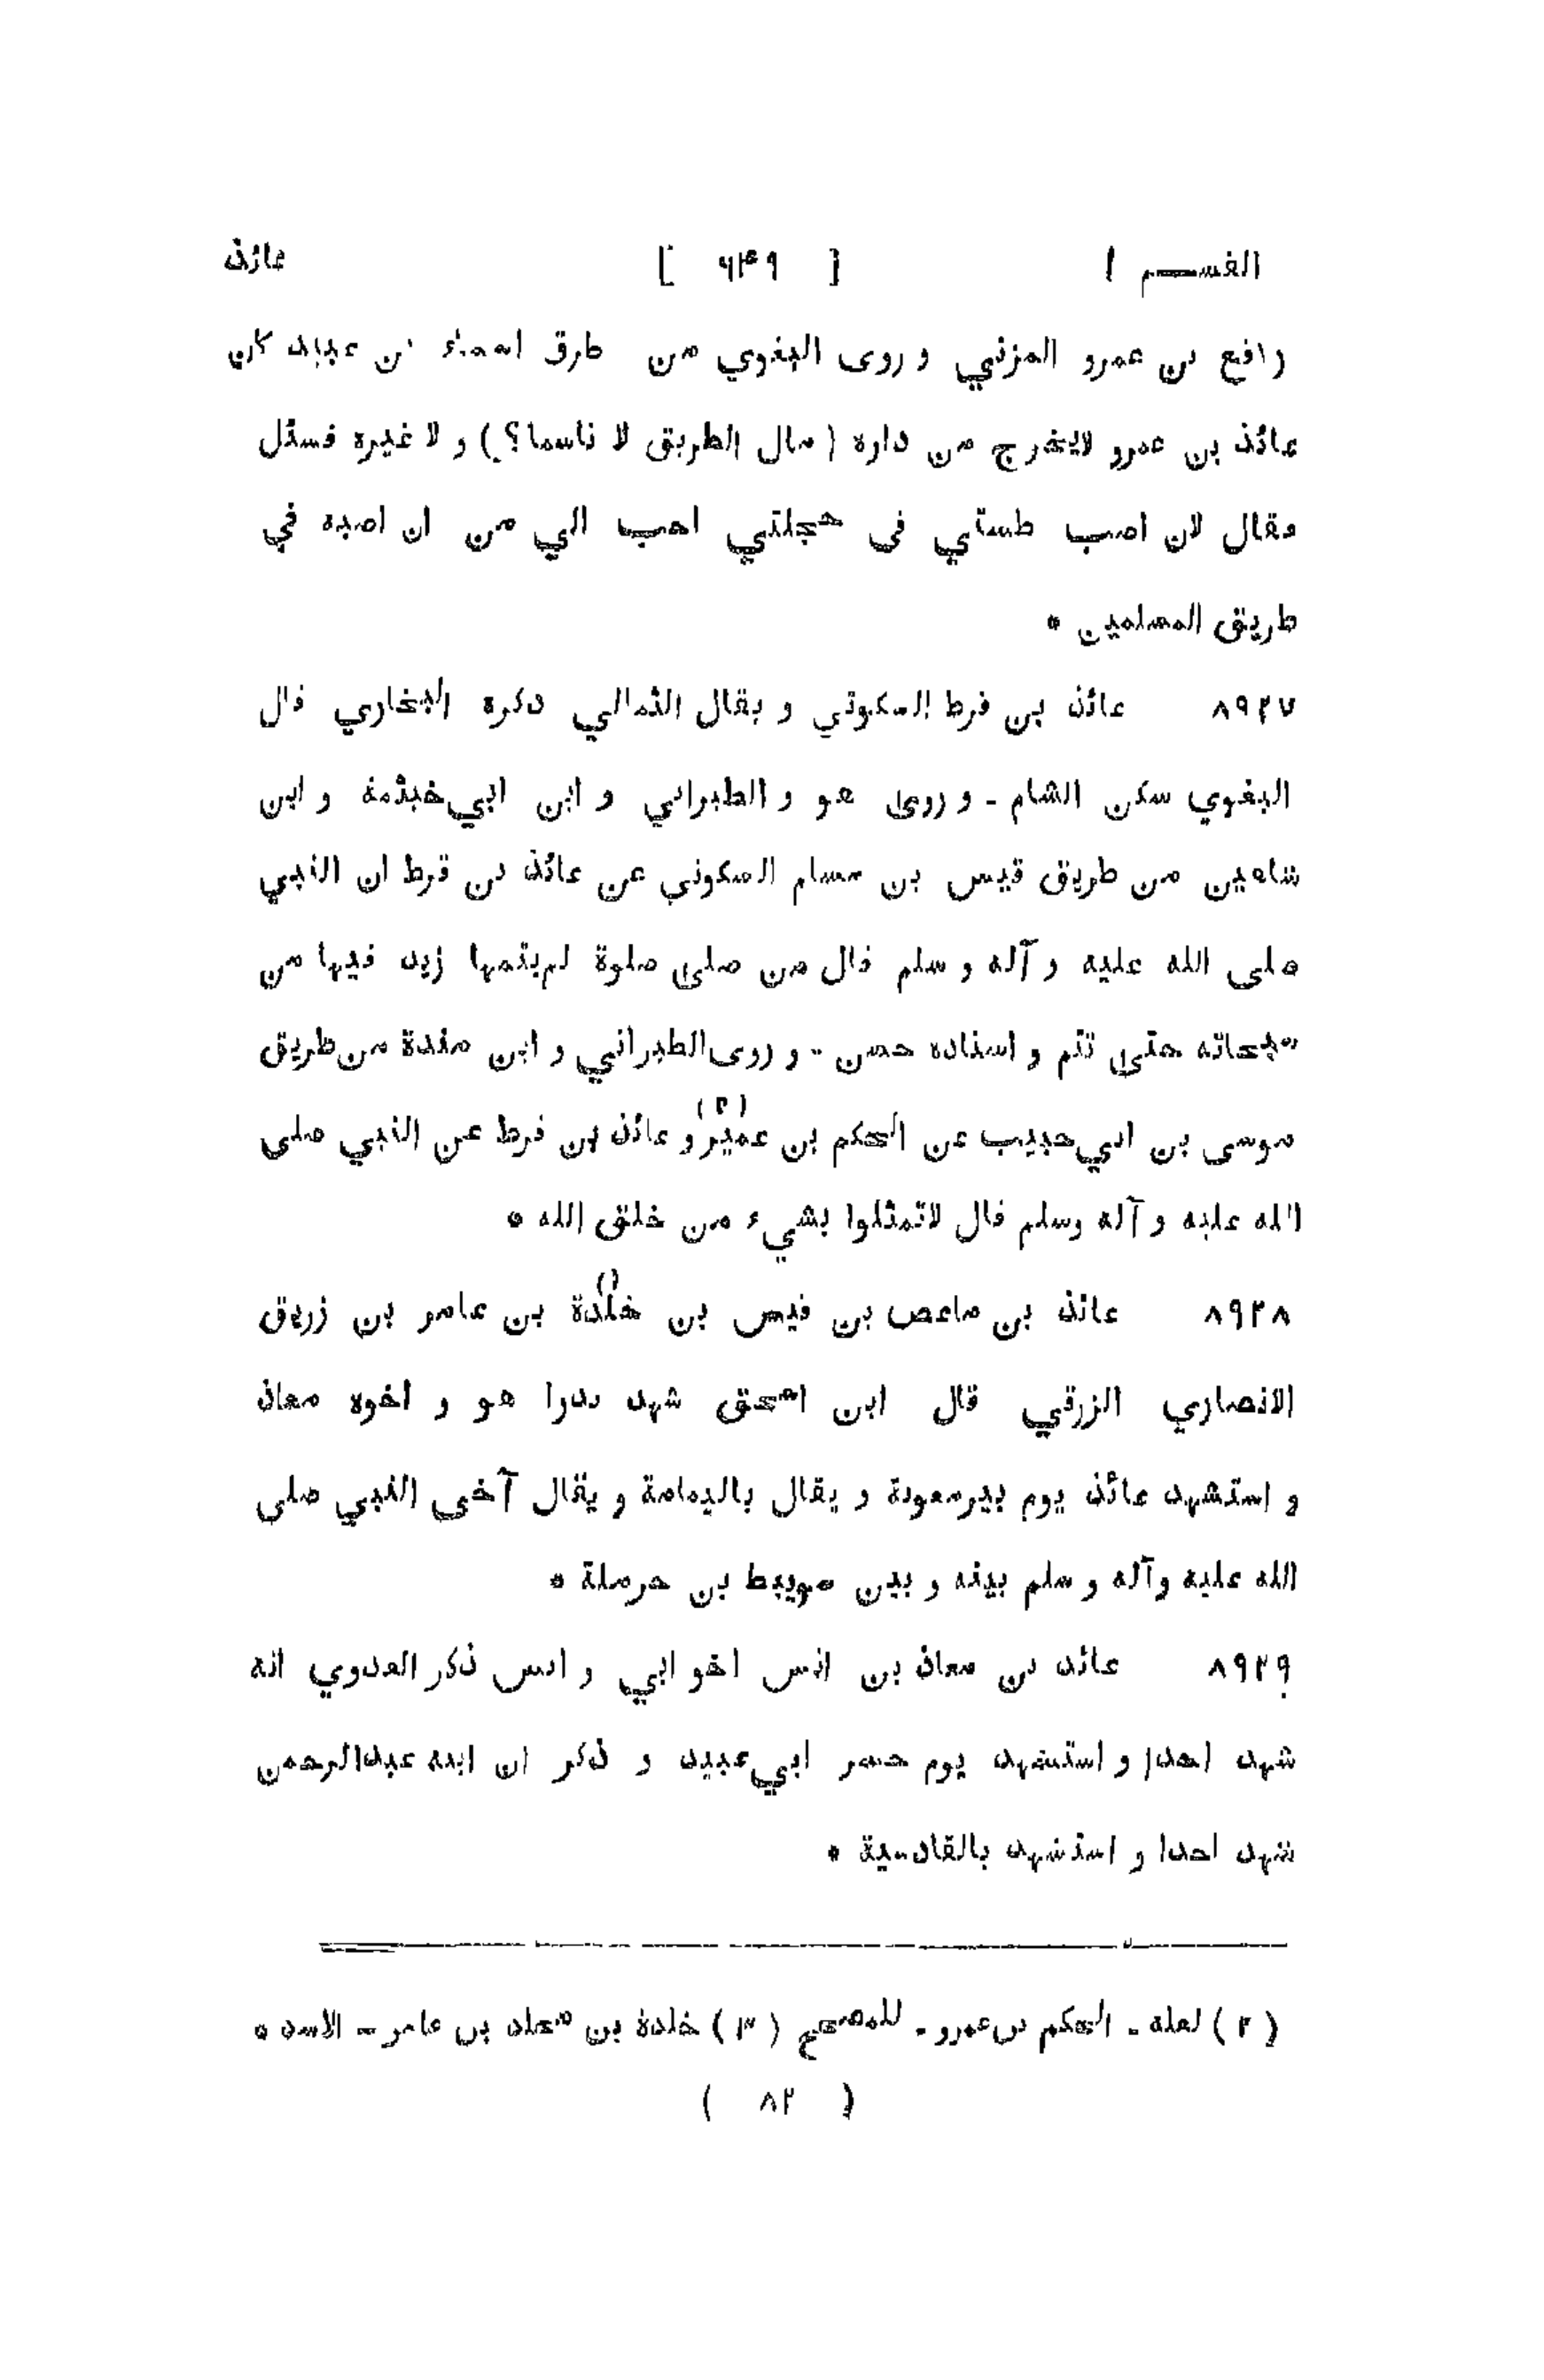 القسم ١ [ ٦٤٩ ] عائذ
رافع بن عمرو المزني و روى البغوي من طرق اسماء بن عبيد كان
عائذ بن عمرو لايخرج من داره ( مال الطريق لا ناسما؟ ) و لا غيره فسئل
فقال لان اصب طستي فى حجلتي احب الي من ان اصبه في
طريق المسلمين *
٨٩٢٧ عائذ بن قرط السكوني و يقال الثمالي ذكره البخاري قال
البغوي سكن الشام - و روى هو و الطبراني و ابن ابي خيثمة و ابن
شاهين من طريق قيس بن مسلم السكوني عن عائذ بن قرط ان النبي
صلى الله عليه و آله و سلم قال من صلى صلوة لم يتمها زيد فيها من
سبحاته حتى تتم و اسناده حسن - و روى الطبراني و ابن مندة من طريق
موسى بن ابي حبيب عن الحكم بن عمير (٢) و عائذ بن قرط عن النبي صلى
الله عليه و آله وسلم قال لاتمثلوا بشيء من خلق الله *
٨٩٢٨ عائذ بن ماعص بن قيس بن خلدة () بن عامر بن زريق
الانصاري الزرقي قال ابن اسحق شهد بدرا هو و اخوه معاذ
و استشهد عائذ يوم بيرمعونة و يقال باليمامة و يقال آخى النبي صلى
الله عليه وآله و سلم بينه و بين سويبط بن حرملة *
٨٩٢٩ عائذ بن معاذ بن انس اخو ابي و انس ذكر العدوي انه
شهد احدا و استشهد يوم جسر ابي عبيد و ذكر ان ابنه عبدالرحمن
شهد احدا و استشهد بالقادسية *
( ٢ ) لعله - الحكم بن عمرو - للمصحح ( ٣ ) خلدة بن مخلد بن عامر - الاسد *
( ٨٢ )